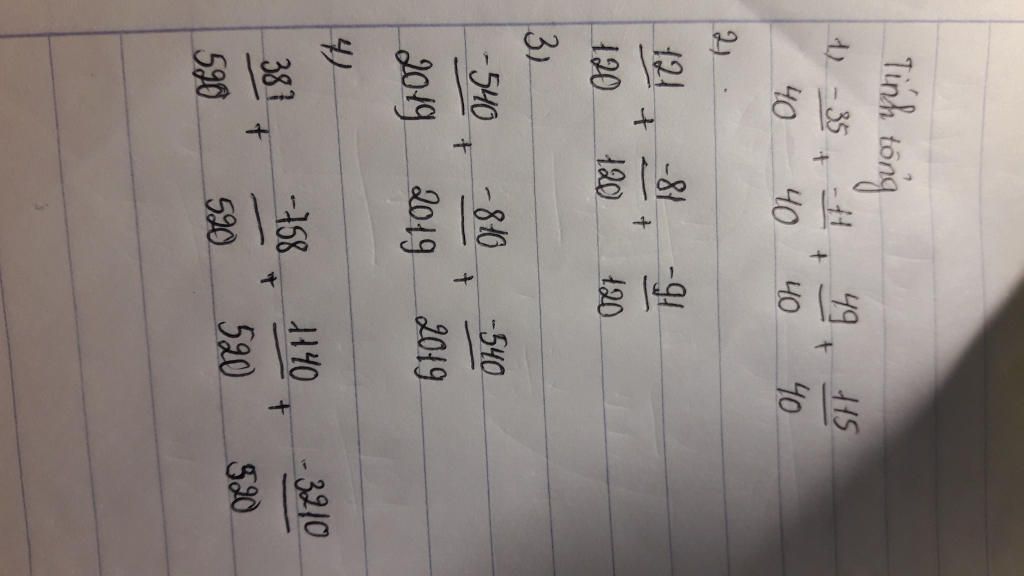 Tính tổng
1) -35/40 + -11/40 + 49/40 + 115/40
2) 121/120 + -81/120 + -91/120
3) -540/2019 + -810/2019 + -540/2019
4) 387/520 + -758/520 + 1140/520 + -3210/520